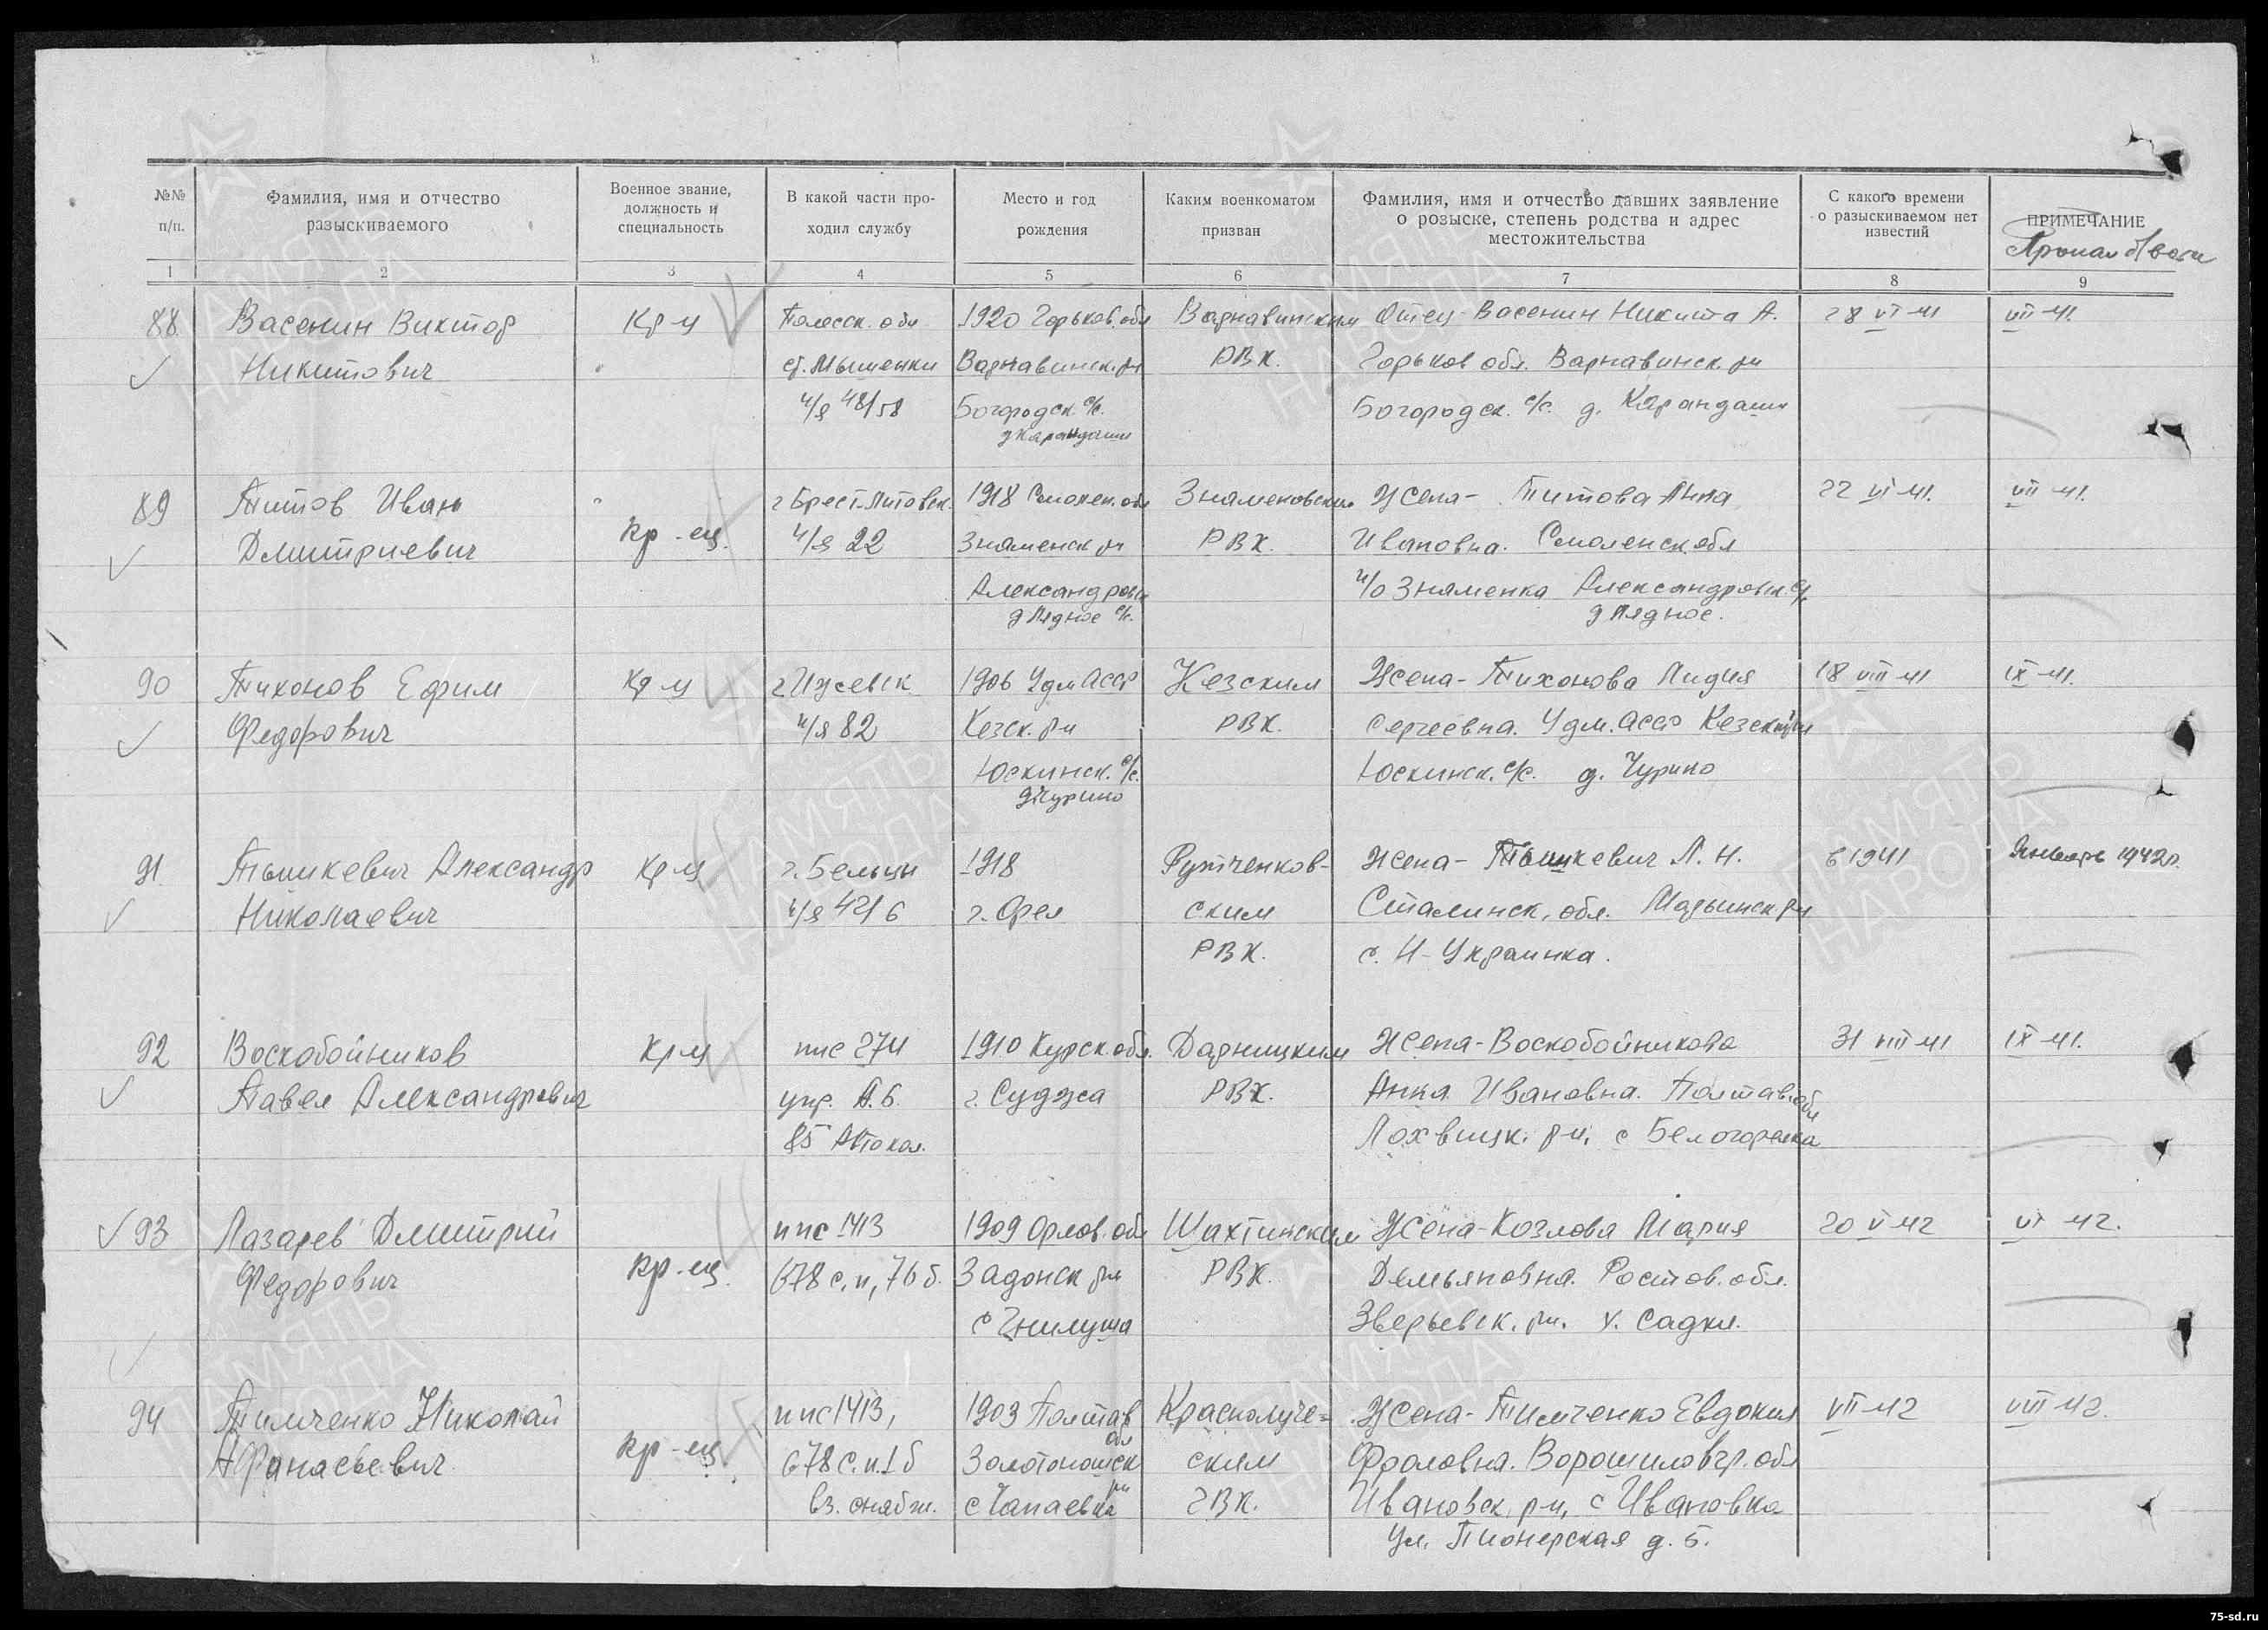 №№ п/п.
Фамилия, имя и отчество разыскиваемого
Военное звание, должность и специальность
В какой части проходил службу
Место и год рождения
Каким военкоматом призван
Фамилия, имя и отчество давших заявление о розыске, степень родства и адрес местожительства
С какого времени о разыскиваемом нет известий
ПРИМЕЧАНИЕ
Пропал
1 2 3 4 5 6 7 8 9
88 Васенин Виктор Кр-ц Полесск. обл 1920 Горьков. обл Варнавинским Отец-Васенин Никита А. 28 VI 41 VII 41.
Никитович ст. Мышенки Варнавинск. рн РВК. Горьков обл. Варнавинск. рн
п/я 48/58 Богородск. с/с. Богородск. с/с. д. Карандаши
д Карандаши
89 Титов Иван г Брест-Литовск. 1918 Смолен. обл Знаменовским Жена- Титова Анна 22 VI 41. VII 41.
Дмитриевич Кр-ец. п/я 22 Знаменск рн РВК. Ивановна. Смоленск. обл
Александровск п/о Знаменка Александровск. с/с
д Лядное с/с. д Лядное.
90 Тихонов Ефим Кр-ц г Ижевск 1906 Удм АССР Кезским Жена-Тихонова Лидия 18 VIII 41 IX 41.
Федорович п/я 82 Кезск. рн РВК. Сергеевна. Удм. АССР Кезский рн
Юскинск. с/с. Юскинск. с/с. д. Чурино
д Чурино
91 Тышкевич Александр Кр-ц г. Бельцы 1918 Рутченков- Жена-Тышкевич Л. Н. 6 1941 Январь 1942 г.
Николаевич п/я 42/6 г. Орел ским Сталинск. обл. Марьинск рн
РВК. с. Н-Украинка.
92 Воскобойников Кр-ц ппс 274 1910 Курск. обл. Дарницким Жена-Воскобойникова 31 VIII 41 IX 41.
Павел Александрович упр. А.Б. г. Суджа РВК. Анна Ивановна. Полтав. обл
85 Автокол. Лохвицк. р-н, с Белогорелка
93 Лазарев Дмитрий ппс 1413 1909 Орлов. обл Шахтинским Жена-Козлова Мария 20 V 42 VI 42.
Федорович Кр-ец. 678 с.п, 76 б. Задонск рн РВК. Демьяновна. Ростов. обл.
с Гнилуша Зверевск. рн. х. Садки.
94 Тимченко Николай ппс 1413, 1903 Полтав обл Краснолуче= Жена-Тимченко Евдокия VII 42 VIII 42.
Афанасьевич Кр-ец. 678 с.п. 1 б Золотоношск рн ским Фроловна. Ворошиловгр. обл
вз. снабж. с Чапаевка ГВК. Ивановск. р-н, с Ивановка
ул. Пионерская д. 5.
ПАМЯТЬ НАРОДА
75-sd.ru